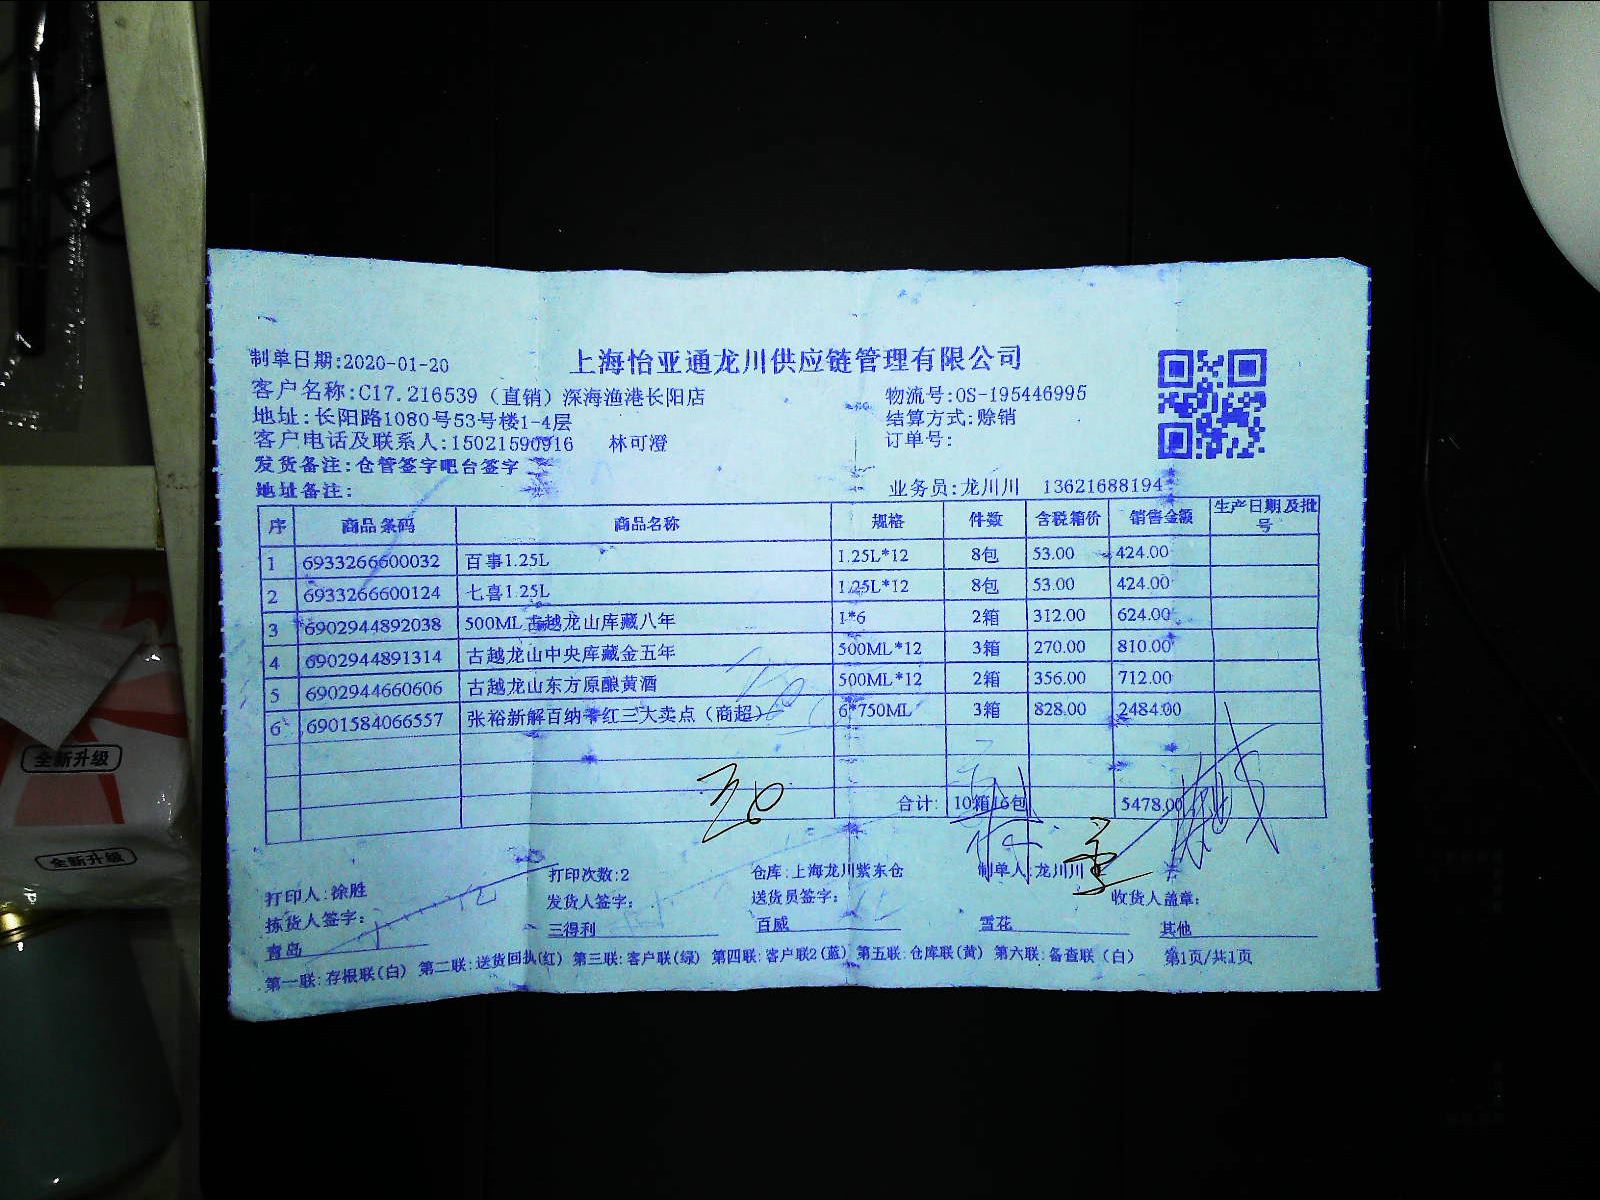 制单日期:2020-01-20
上海怡亚通龙川供应链管理有限公司
客户名称:C17.216539（直销）深海渔港长阳店
物流号:OS-195446995
地址:长阳路1080号53号楼1-4层
结算方式:赊销
客户电话及联系人:15021590916 林可澄
订单号:
发货备注:仓管签字吧台签字
地址备注:
业务员:龙川川 13621688194
序 商品条码 商品名称 规格 件数 含税箱价 销售金额 生产日期及批号
1 6933266600032 百事1.25L 1.25L*12 8包 53.00 424.00
2 6933266600124 七喜1.25L 1.25L*12 8包 53.00 424.00
3 6902944892038 500ML古越龙山库藏八年 1*6 2箱 312.00 624.00
4 6902944891314 古越龙山中央库藏金五年 500ML*12 3箱 270.00 810.00
5 6902944660606 古越龙山东方原酿黄酒 500ML*12 2箱 356.00 712.00
6 6901584066557 张裕新解百纳干红三大卖点（商超） 6*750ML 3箱 828.00 2484.00
合计: 10箱16包 5478.00
打印人:徐胜 打印次数:2 仓库:上海龙川紫东仓 制单人:龙川川
拣货人签字: 发货人签字: 送货员签字: 收货人盖章:
青岛 三得利 百威 雪花 其他
第一联:存根联(白) 第二联:送货回执(红) 第三联:客户联(绿) 第四联:客户联2(蓝) 第五联:仓库联(黄) 第六联:备查联(白) 第1页/共1页
全新升级
全新升级